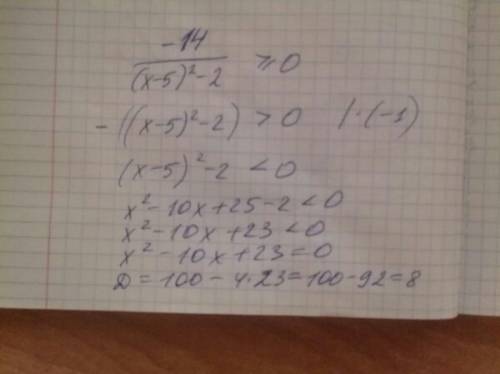 -14 / ((x-5)²-2) ≥ 0
-((x-5)²-2) > 0 | · (-1)
(x-5)²-2 < 0
x²-10x+25-2 < 0
x²-10x+23 < 0
x²-10x+23 = 0
D = 100 - 4·23 = 100-92 = 8